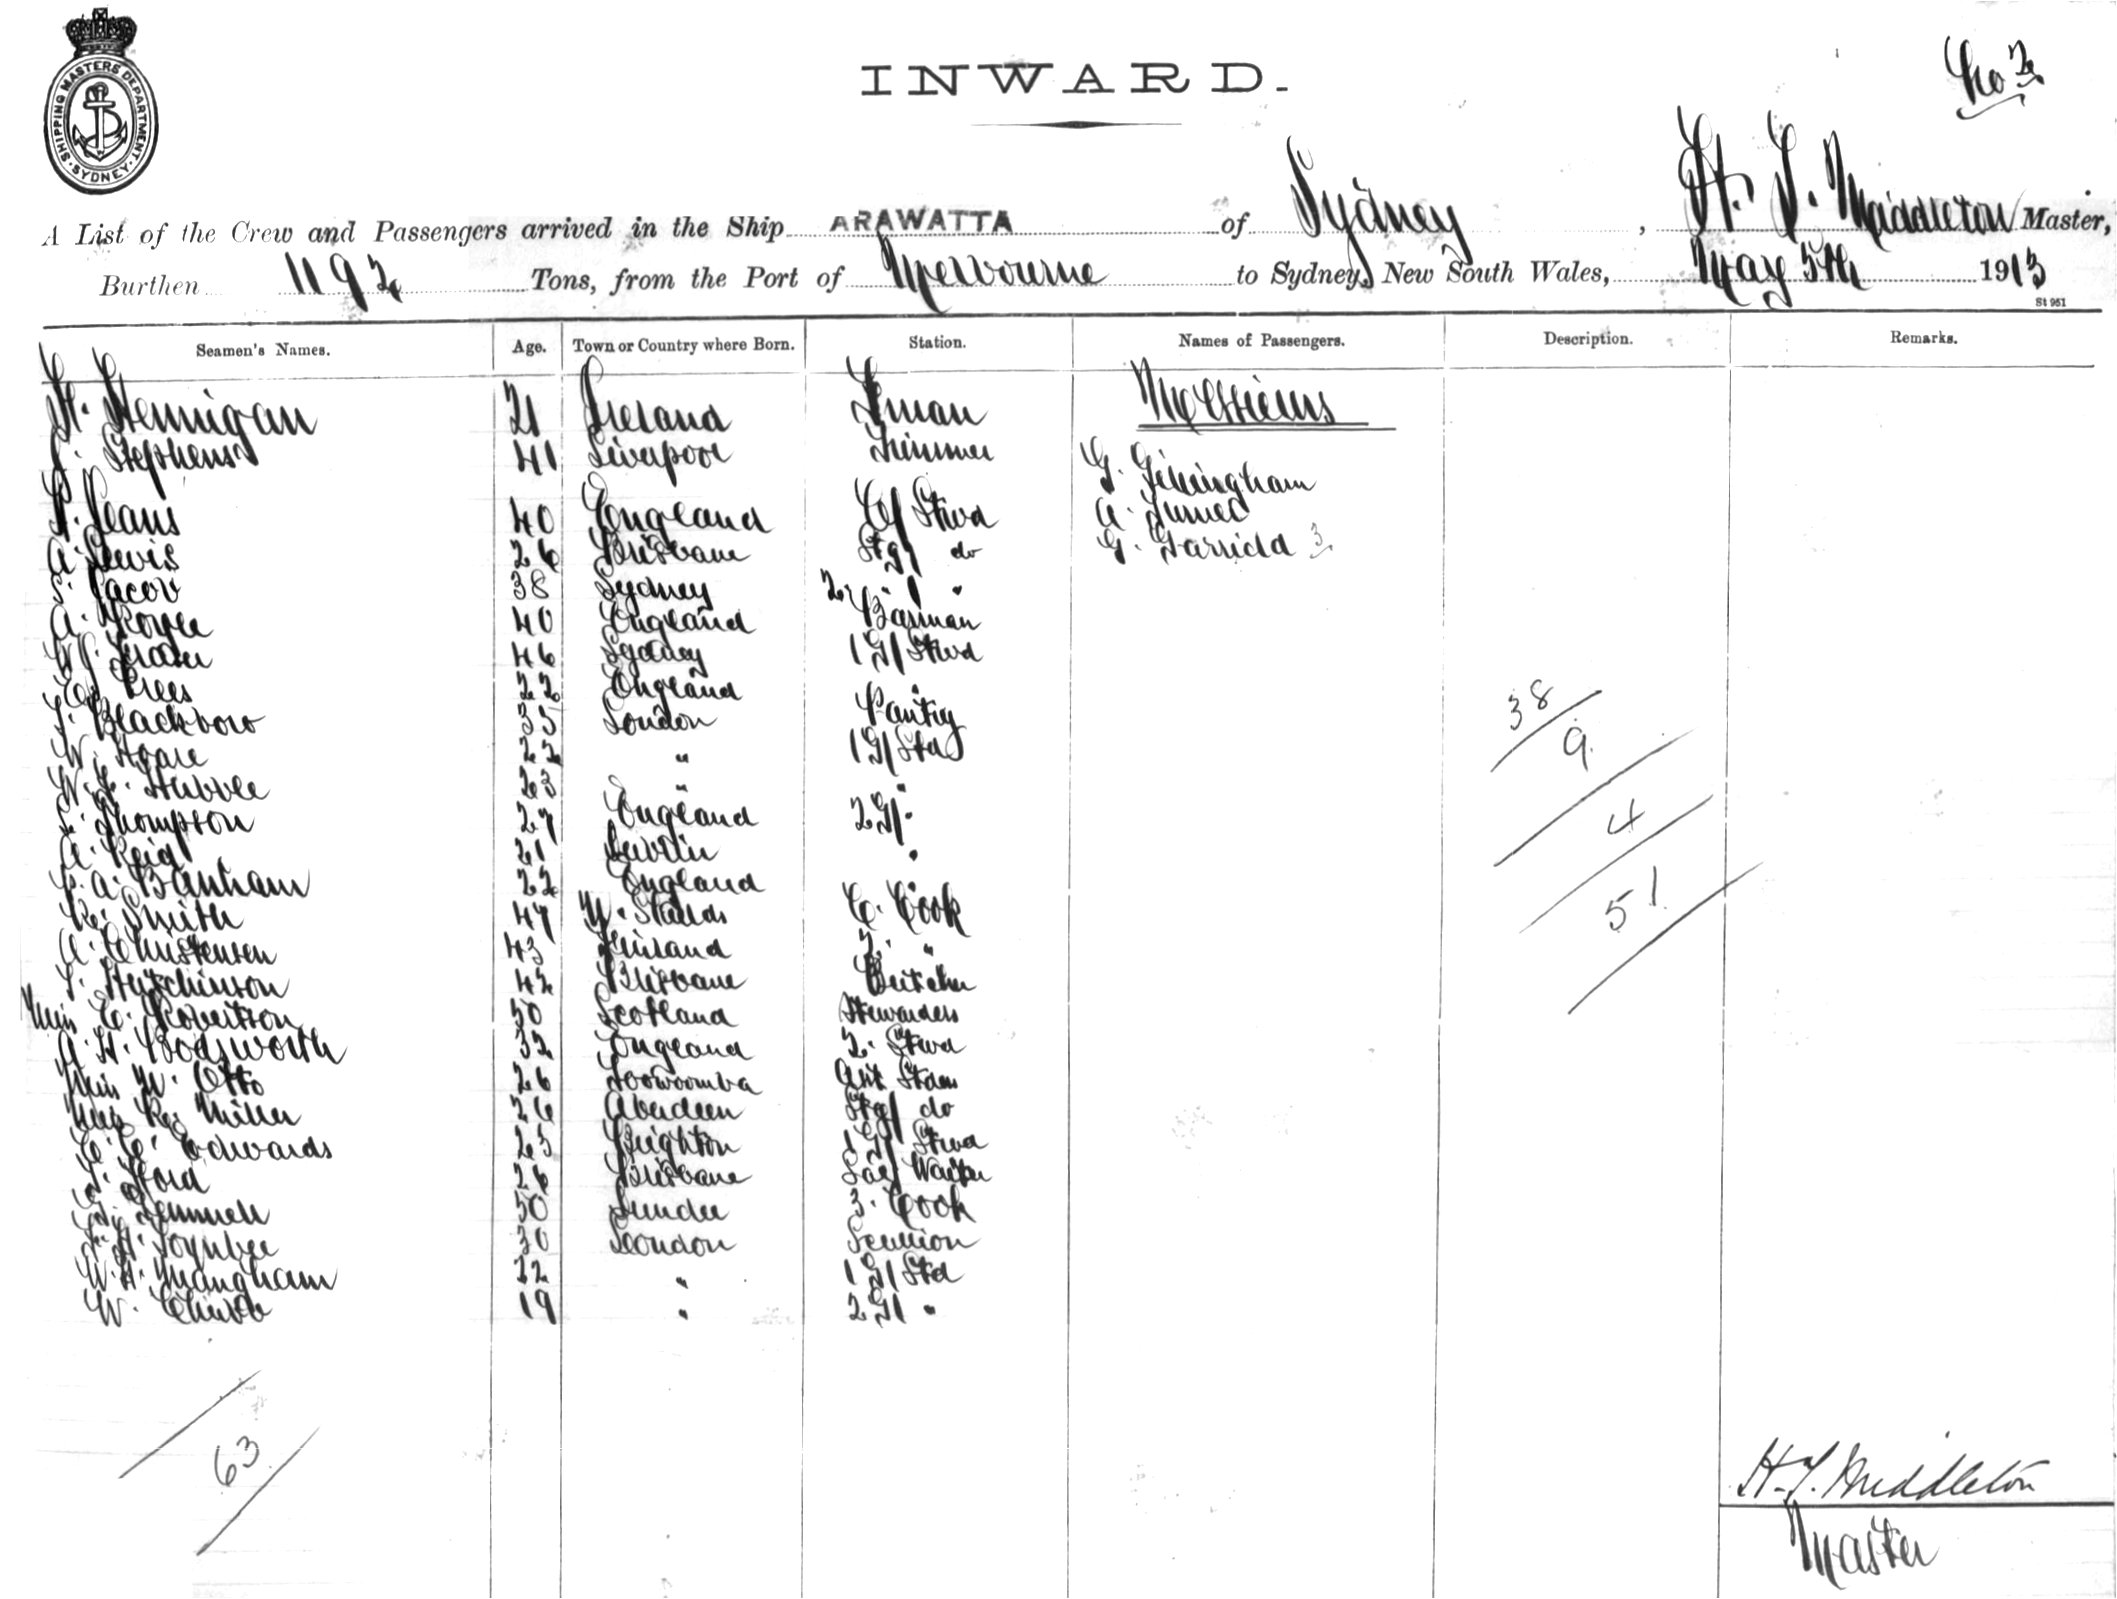 SHIPPING MASTERS DEPARTMENT
SYDNEY
INWARD.
No 2
A List of the Crew and Passengers arrived in the Ship ARAWATTA of Sydney, H. T. Middleton Master,
Burthen 1192 Tons, from the Port of Melbourne to Sydney, New South Wales, May 5th 1913
St 951
Seamen's Names. Age. Town or Country where Born. Station. Names of Passengers. Description. Remarks.
H. Hennigan 21 Ireland Fman
J. Stephens 41 Liverpool Trimmer G. Gillingham
H. Jeans 40 England Cf Stwd A. Turner
A. Lewis 26 Brisbane do G. Garrida 3
S. Jacob 38 Sydney 2 " "
A. 40 England Barman
46 Sydney 1 Stwd
Trees 22 England "
T. Blackbow 35 London Pantry
W. Hoare 22 " 1 Std
W. Hubble 23 " "
Thompson 27 England 2
A. Reid 21 Dublin "
A. Banham 22 England "
R. Smith 47 W. Islands C. Cook
A. Christensen 43 Finland 2. "
T. Hutchinson 42 Brisbane Butcher
Miss E. Robertson 50 Scotland Stewardess
A. H. Bodsworth 32 England 2. Stwd
Miss W. Otto 26 Toowoomba Asst Stdess
R. Miller 26 Aberdeen do
C. C. Edwards 23 Brighton 1 Stwd
T. Ford 26 Brisbane Waiter
Gemmell 50 Dundee 3. Cook
H. Toynbee 30 London Scullion
W. H. Maugham 22 " 1 Std
W. Chubb 19 " 2 "
38
9
4
51
63
H. T. Middleton
Master